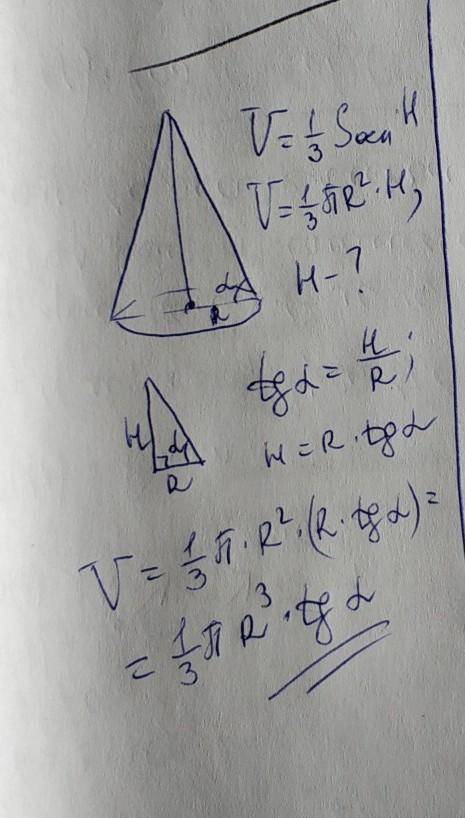 V = 1/3 Sосн H
V = 1/3 πR² · H,
H - ?
α
R
tg α = H/R;
H = R · tg α
H
α
R
V = 1/3 π · R² · (R · tg α) =
= 1/3 π R³ · tg α